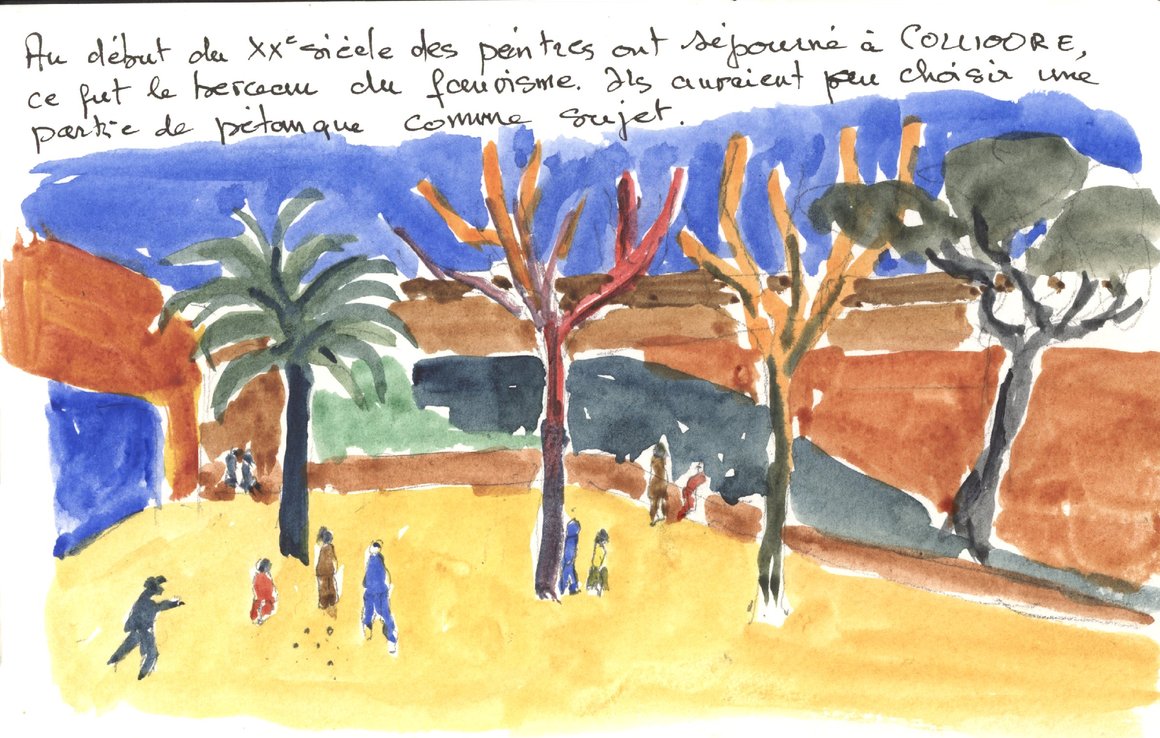 Au début du XXe siècle des peintres ont séjourné à COLLIOORE,
ce fut le berceau du fauvisme. Ils auraient peu choisir une
partie de pétanque comme sujet.